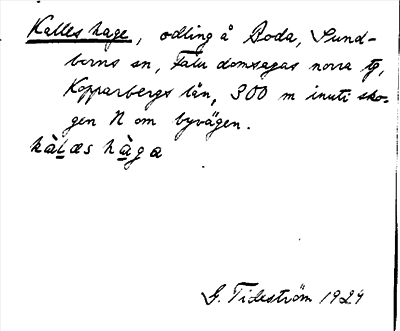 Kalles hage, odling å Boda, Sund-
borns sn, Falu domsagas norra tg,
Kopparbergs län, 300 m inuti sko-
gen N om byvägen.
kàlæs hàga
G. Tideström 1924